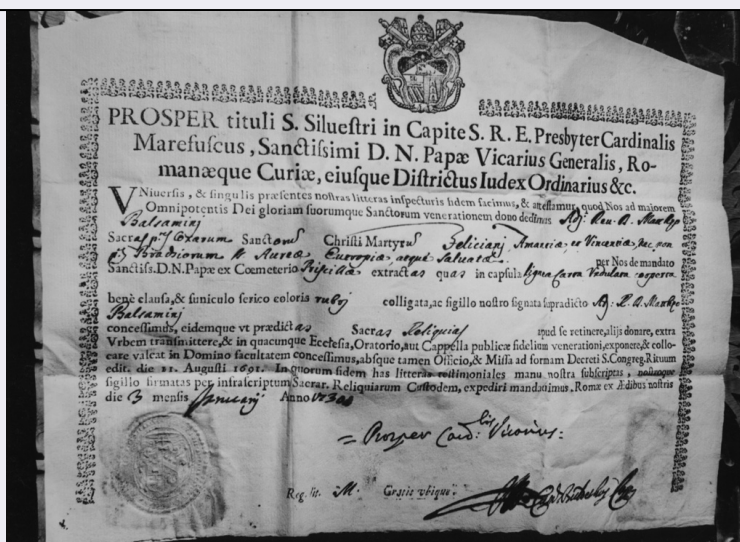 PROSPER tituli S. Silueſtri in Capite S. R. E. Presbyter Cardinalis
Marefuſcus, Sanctiſſimi D. N. Papæ Vicarius Generalis, Ro-
manæque Curiæ, eiuſque Diſtrictus Iudex Ordinarius &c.
VNiuerſis, & ſingulis præſentes noſtras litteras inſpecturis fidem facimus, & atteſtamur, quod Nos ad maiorem
Omnipotentis Dei gloriam ſuorumque Sanctorum venerationem dono dedimus
Balsamini
Sacras Sanctorum Chriſti Martyrum Feliciani
Aureæ
per Nos de mandato
Sanctiſs. D. N. Papæ ex Cœmeterio Priscillæ extractas quas in capſula lignea
benè clauſa, & funiculo ſerico coloris rubri colligata, ac ſigillo noſtro ſignata ſupradicto
Balsamini
conceſſimus, eidemque vt prædictas Sacras Reliquias apud ſe retinere, alijs donare, extra
Vrbem tranſmittere, & in quacunque Eccleſia, Oratorio, aut Cappella publicæ fidelium venerationi, exponere, & collo-
care valeat in Domino facultatem conceſſimus, abſque tamen Officio, & Miſſa ad formam Decreti S. Congreg. Rituum
edit. die 11. Auguſti 1691. In quorum fidem has litteras teſtimoniales manu noſtra ſubſcriptas, noſtroque
ſigillo firmatas per infraſcriptum Sacrar. Reliquiarum Cuſtodem, expediri mandauimus. Romæ ex Ædibus noſtris
die menſis Januarij Anno
= Prosper Card.lis Vicarius =
Reg. lit. M. Gratis vbique.